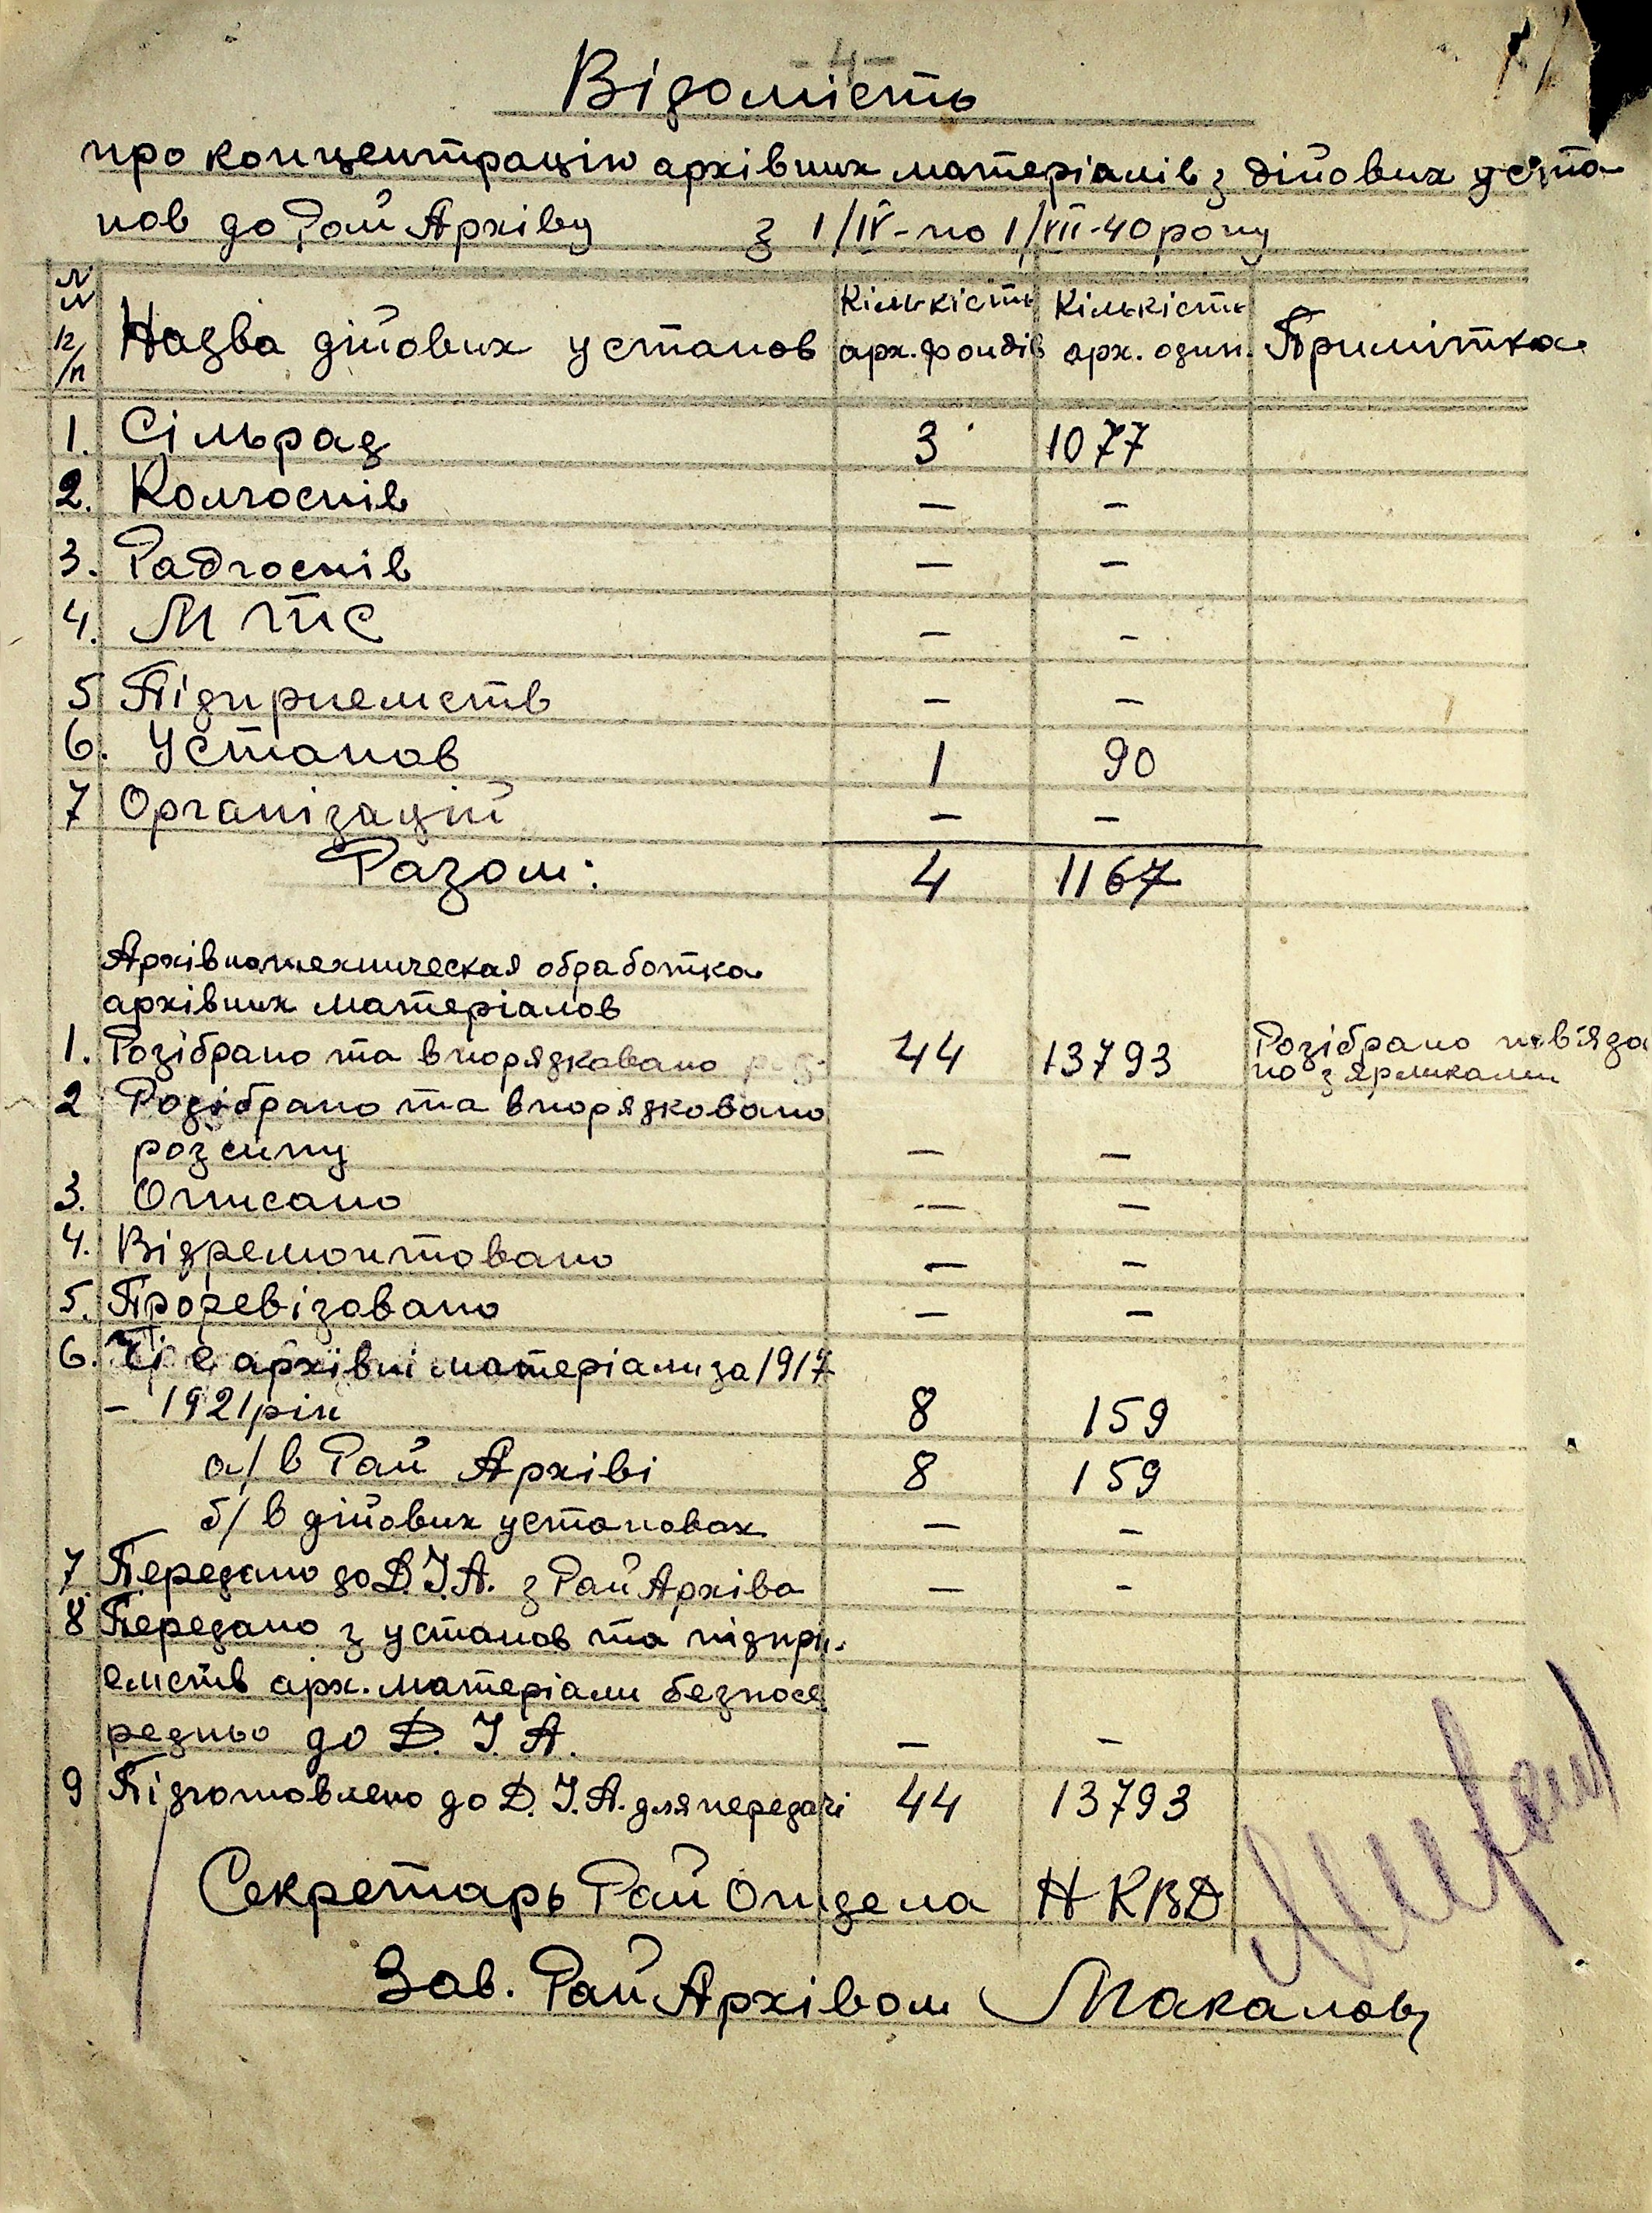 - 4 -
Відомість
про концентрацію архівних матеріалів з дійових уста
нов до Рай Архіву з 1/IV - по 1/VII - 40 року
NN п/п Назва дійових установ Кількість арх. фондів Кількість арх. один. Примітка
1. Сільрад 3 1077
2. Колгоспів — —
3. Радгоспів — —
4. МТС — —
5 Підприемств — —
6. Установ 1 90
7 Організацій — —
Разом: 4 1167
Архівнотехническая обработка
архівних матеріалов
1. Розібрано та впорядковано 44 13793 Розібрано пов'яза
но з ярликами
2 Розібрано та впорядковано
розсипу — —
3. Описано — —
4. Відремонтовано — —
5. Проревізовано — —
6. Чі е архівні матеріали за 1917
- 1921 рік 8 159
а/ в Рай Архіві 8 159
б/ в дійових установах — —
7. Передано до Д.І.А. з Рай Архіва — —
8. Передано з установ та підпри-
емств арх. матеріали безпосе
редньо до Д. І. А. — —
9 Підготовлено до Д. І. А. для передачі 44 13793
Секретарь Рай Отдела НКВД
Зав. Рай Архівом Макалов